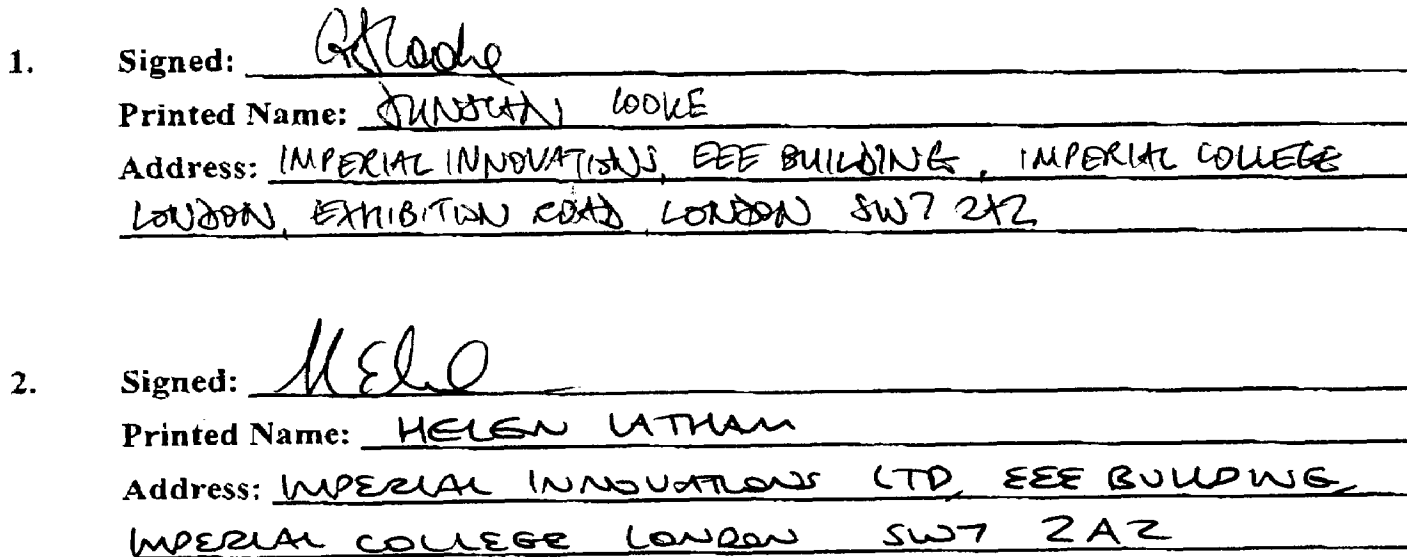 1. Signed:
Printed Name: COOKE
Address: IMPERIAL INNOVATIONS, EEE BUILDING, IMPERIAL COLLEGE
LONDON, EXHIBITION ROAD, LONDON SW7 2AZ
2. Signed:
Printed Name: HELEN LATHAM
Address: IMPERIAL INNOVATIONS LTD, EEE BUILDING,
IMPERIAL COLLEGE LONDON SW7 2AZ